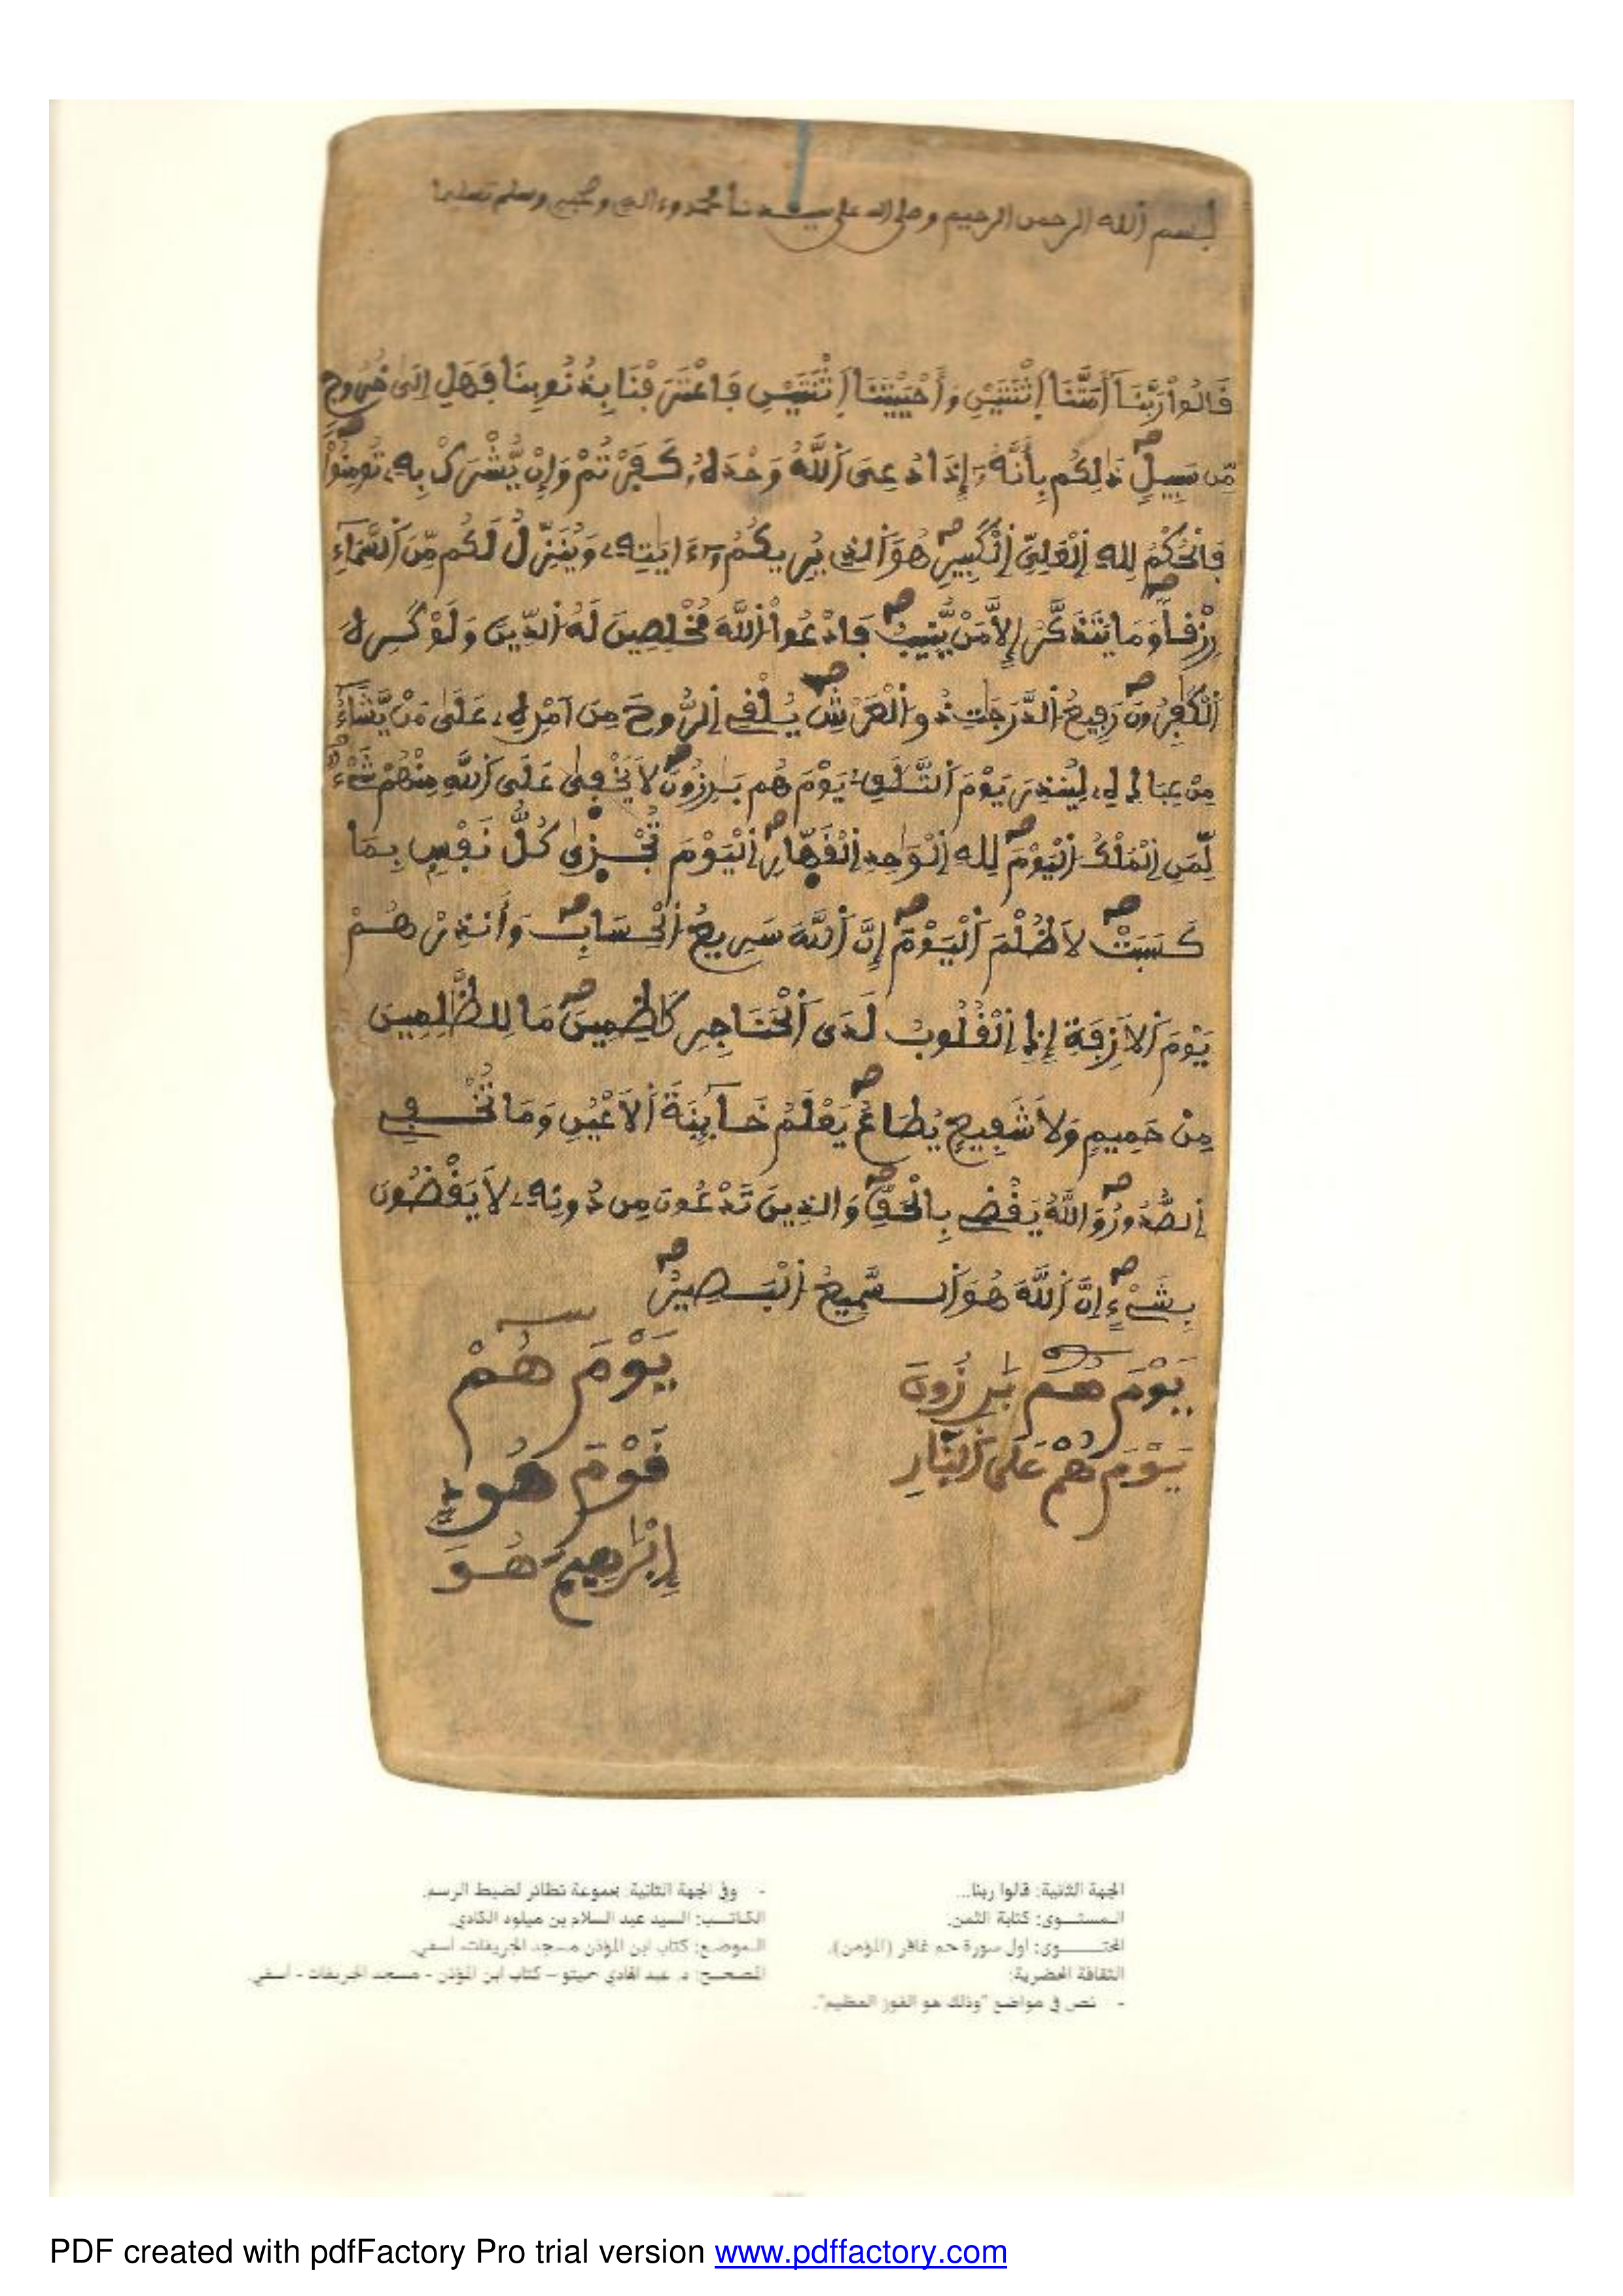 بسم الله الرحمن الرحيم وصلى الله على سيدنا محمد وءاله وصحبه وسلم تسليما
قَالُواْ رَبَّنَآ أَمَتَّنَا اَثْنَتَيْنِ وَأَحْيَيْتَنَا اَثْنَتَيْنِ فَاعْتَرَفْنَا بِذُنُوبِنَا فَهَلِ اِلَىٰ خُرُوجٍ
مِّن سَبِيلٍ ذَٰلِكُم بِأَنَّهُۥٓ إِذَا دُعِىَ اَللَّهُ وَحْدَهُۥ كَفَرْتُمْ وَإِنْ يُّشْرَكْ بِهِۦ تُومِنُواْ
فَالْحُكْمُ لِلهِ اِلْعَلِيِّ اِلْكَبِيرِ هُوَ اَلذِى يُرِيكُمُۥٓ ءَايَٰتِهِۦ وَيُنَزِّلُ لَكُم مِّنَ اَلسَّمَآءِ
رِزْقاً وَمَا يَتَذَكَّرُ إِلاَّ مَنْ يُّنِيبُ فَادْعُواْ اُللَّهَ مُخْلِصِينَ لَهُ اُلدِّينَ وَلَوْ كَرِهَ
اَلْكَٰفِرُونَ رَفِيعُ اُلدَّرَجَٰتِ ذُو اُلْعَرْشِ يُلْقِى اِلرُّوحَ مِنَ اَمْرِهِۦ عَلَىٰ مَنْ يَّشَآءُ
مِنْ عِبَادِهِۦ لِيُنذِرَ يَوْمَ اَلتَّلَٰقِۦ يَوْمَ هُم بَٰرِزُونَ لاَ يَخْفَىٰ عَلَى اَللَّهِ مِنْهُمْ شَىْءٌ
لِّمَنِ اِلْمُلْكُ اُلْيَوْمَ لِلهِ اِلْوَٰحِدِ اِلْقَهّارِ اِلْيَوْمَ تُجْزَىٰ كُلُّ نَفْسٍ بِمَا
كَسَبَتْ لاَ ظُلْمَ اَلْيَوْمَ إِنَّ اَللَّهَ سَرِيعُ اُلْحِسَابِ وَأَنذِرْهُمْ
يَوْمَ اَلاَزِفَةِ إِذِ اِلْقُلُوبُ لَدَى اَلْحَنَاجِرِ كَٰظِمِينَ مَا لِلظَّٰلِمِينَ
مِنْ حَمِيمٍ وَلاَ شَفِيعٍ يُطَاعُ يَعْلَمُ خَآئِنَةَ اَلاَعْيُنِ وَمَا تُخْفِى
اِلصُّدُورُ وَاللَّهُ يَقْضِى بِالْحَقِّ وَالذِينَ تَدْعُونَ مِن دُونِهِۦ لاَ يَقْضُونَ
بِشَىْءٍ اِنَّ اَللَّهَ هُوَ اَلسَّمِيعُ اُلْبَصِيرُ
يَوْمَ هُم بَٰرِزُونَ
يَوْمَ هُمْ عَلَى اَلنّارِ
يَوْمَ هُمْ
قَوْمَ هُودٍ
إِبْرَٰهِيمَ هُوَ
الجهة الثانية: قالوا ربنا...
المستوى: كتابة الثمن.
المحتوى: اول سورة حم غافر (المؤمن).
الثقافة الحضرية:
- نص في مواضع "وذلك هو الفوز العظيم".
- وفي الجهة الثانية: مجموعة نظائر لضبط الرسم.
الكاتب: السيد عبد السلام بن ميلود الكادي.
الموضع: كتاب ابن المؤذن مسجد الخريفات، أسفي.
المصحح: د. عبد الهادي حميتو – كتاب ابن المؤذن - مسجد الخريفات - أسفي.
PDF created with pdfFactory Pro trial version www.pdffactory.com